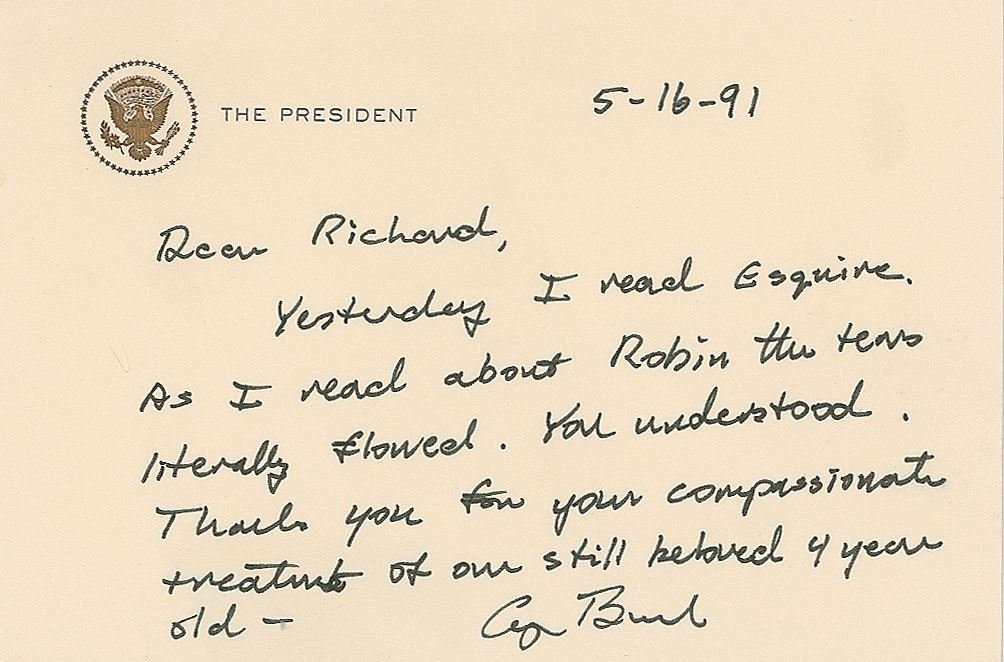 THE PRESIDENT
5-16-91
Dear Richard,
Yesterday I read Esquire.
As I read about Robin the tears
literally flowed. You understood.
Thank you for your compassionate
treatment of our still beloved 4 year
old -
Geo Bush